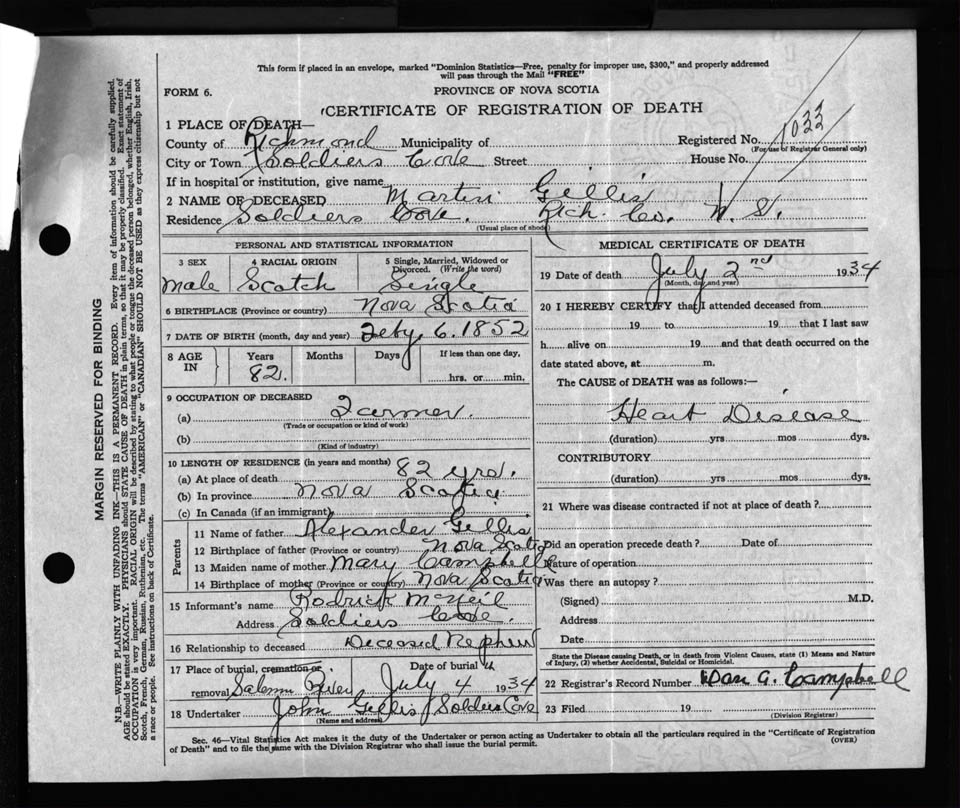 This form if placed in an envelope, marked "Dominion Statistics—Free, penalty for improper use, $300," and properly addressed
will pass through the Mail "FREE"
FORM 6.
PROVINCE OF NOVA SCOTIA
CERTIFICATE OF REGISTRATION OF DEATH
1 PLACE OF DEATH—
County of Richmond Municipality of Registered No. 1033
(For use of Registrar General only)
City or Town Soldiers Cove Street House No.
If in hospital or institution, give name
2 NAME OF DECEASED Martin Gillis
Residence Soldiers Cove. Rich. Co. N. S.
(Usual place of abode)
PERSONAL AND STATISTICAL INFORMATION
3 SEX 4 RACIAL ORIGIN 5 Single, Married, Widowed or Divorced. (Write the word)
Male Scotch Single
6 BIRTHPLACE (Province or country) Nova Scotia
7 DATE OF BIRTH (month, day and year) Feby. 6. 1852
8 AGE IN Years Months Days If less than one day,
82. hrs. or min.
9 OCCUPATION OF DECEASED
(a) Farmer.
(Trade or occupation or kind of work)
(b)
(Kind of industry)
10 LENGTH OF RESIDENCE (in years and months)
(a) At place of death 82 yrs.
(b) In province Nova Scotia
(c) In Canada (if an immigrant)
Parents
11 Name of father Alexander Gillis
12 Birthplace of father (Province or country) Nova Scotia
13 Maiden name of mother Mary Campbelle
14 Birthplace of mother (Province or country) Nova Scotia
15 Informant's name Rodrick McNeil
Address Soldiers Cove.
16 Relationship to deceased Deceased Nephew
17 Place of burial, cremation or removal Date of burial
River July 4 1934
18 Undertaker John Gillis Soldiers Cove
(Name and address)
MEDICAL CERTIFICATE OF DEATH
19 Date of death July 2nd 1934
(Month, day and year)
20 I HEREBY CERTIFY that I attended deceased from
19 to 19 that I last saw
h alive on 19 and that death occurred on the
date stated above, at m.
The CAUSE of DEATH was as follows:—
Heart Disease
(duration) yrs mos dys.
CONTRIBUTORY
(duration) yrs mos dys.
21 Where was disease contracted if not at place of death?
Did an operation precede death? Date of
Nature of operation
Was there an autopsy?
(Signed) M.D.
Address
Date
State the Disease causing Death, or in death from Violent Causes, state (1) Means and Nature
of Injury, (2) whether Accidental, Suicidal or Homicidal.
22 Registrar's Record Number Dan A. Campbell
23 Filed 19
(Division Registrar)
Sec. 46—Vital Statistics Act makes it the duty of the Undertaker or person acting as Undertaker to obtain all the particulars required in the "Certificate of Registration
of Death" and to file the same with the Division Registrar who shall issue the burial permit.
(OVER)
MARGIN RESERVED FOR BINDING
N.B.—WRITE PLAINLY WITH UNFADING INK—THIS IS A PERMANENT RECORD. Every item of information should be carefully supplied.
AGE should be stated EXACTLY. PHYSICIANS should STATE CAUSE OF DEATH in plain terms, so that it may be properly classified. Exact statement of
OCCUPATION is very important. RACIAL ORIGIN will be described by stating to what people or tongue the deceased person belonged, whether English, Irish,
Scotch, French, German, Russian, Ruthenian, etc. The terms "AMERICAN" or "CANADIAN" SHOULD NOT BE USED as they express citizenship but not
a race or people. See instructions on back of Certificate.